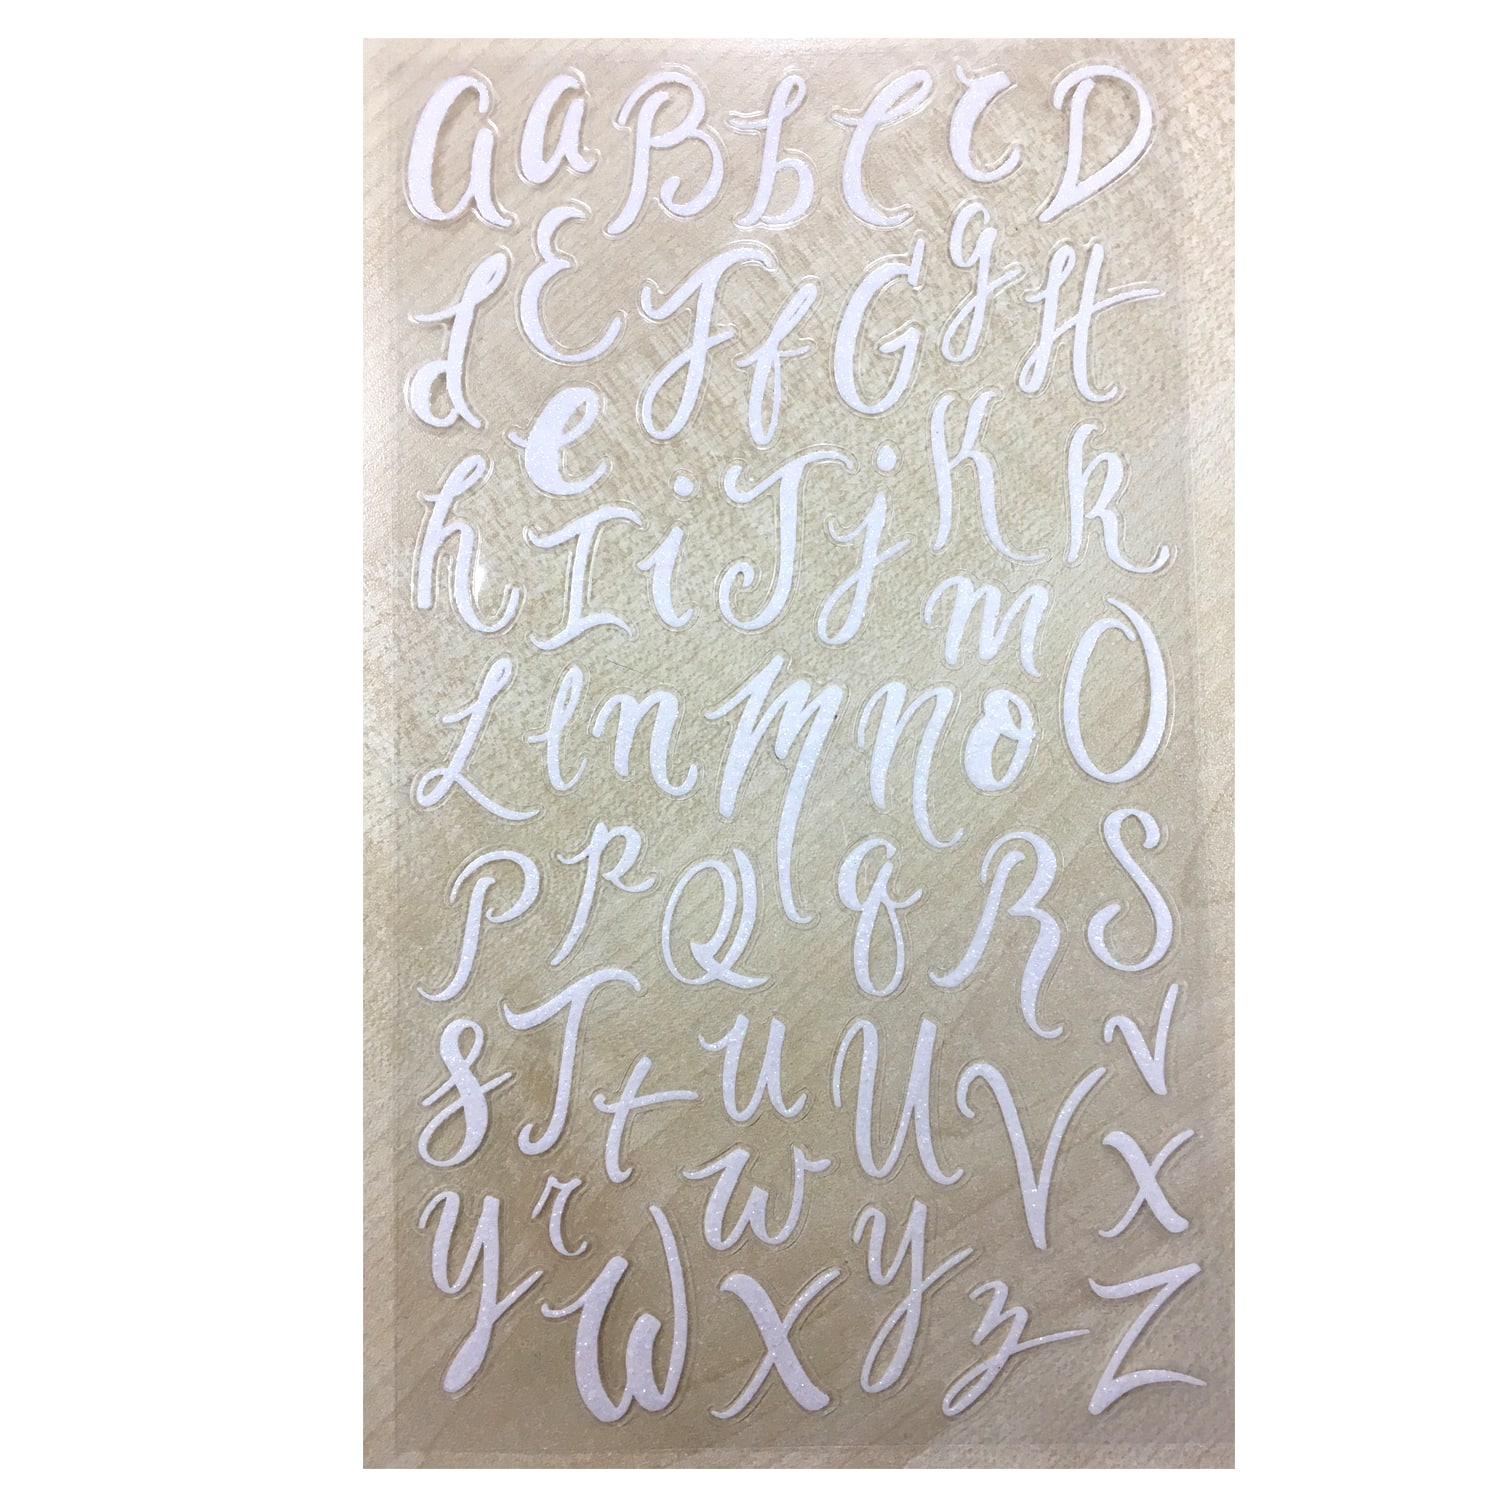 A a B b C c D
d E F f G g H
h e I i J j K k
L l n M N m o O
P p Q q R S
s T t u U V v
Y r W w X y z Z x